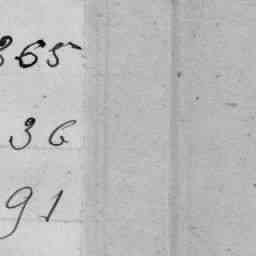 365
36
91